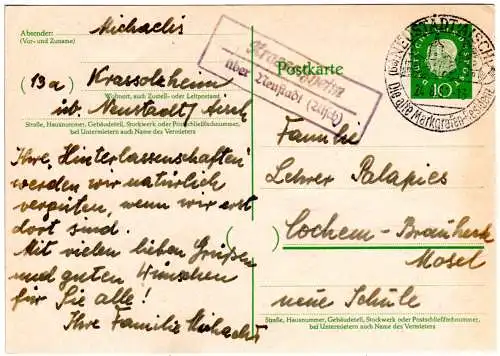 Absender:
(Vor- und Zuname)
Michaelis
(13a) Krassolzheim
Wohnort, auch Zustell- oder Leitpostamt
üb. Neustadt/Aisch
Straße, Hausnummer, Gebäudeteil, Stockwerk oder Postschließfachnummer,
bei Untermietern auch Name des Vermieters
Ihre „Hinterlassenschaften"
werden wir natürlich
vergüten, wenn wir erst
dort sind.
Mit vielen lieben Grüßen
und guten Wünschen
für Sie alle!
Ihre Familie Michaelis
Krassolzheim
über Neustadt (Aisch)
Postkarte
DEUTSCHE BUNDESPOST
10
NEUSTADT (AISCH)
Die alte Markgrafen-Residenz
Familie
Lehrer Palapies
Cochem-Brauheck
Mosel
neue Schule
Straße, Hausnummer, Gebäudeteil, Stockwerk oder Postschließfachnummer,
bei Untermietern auch Name des Vermieters